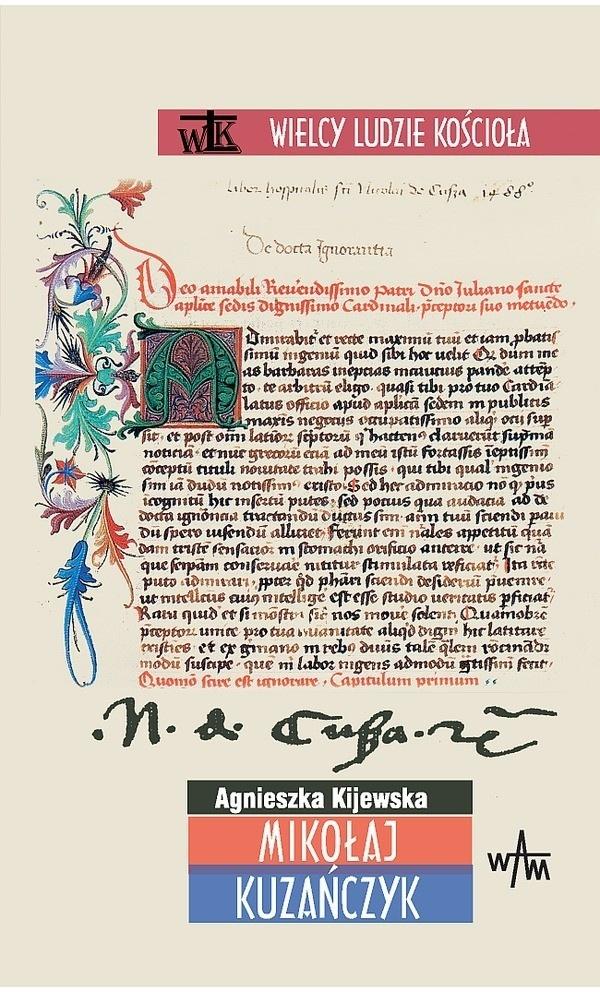 WLK WIELCY LUDZIE KOŚCIOŁA
liber hospitalis sti Nicolai de Cusza 1488
De docta Ignorantia
Deo amabili Reuendissimo patri Dno Iuliano sancte
aplice sedis dignissimo Cardinali. pceptori suo metuedo.
Admirabit et recte maximu tuu et iam pbatis
simu ingeniu quid sibi hoc velit Qz dum me
as barbaras ineptias incautius pande attep
to. te arbitru eligo. quasi tibi pro tuo Cardia
latus officio apud aplica sedem in publicis
maxis negocijs ocupatissimo aliqd ocii sup
sit. et post oim latior scptoru q hacten9 claruerut supma
noticia. et nuc grecoru etia ad meu istu fortassis ieptissim
coceptu tituli nouitate trahi possis. qui tibi qual ingenio
sim ia dudu notissim9 existo Sed hec admiracio no q pus
icognitu hic insertu putes. sed pocius qua audacia ad de
docta ignoncia tractandu ductus sim. aim tuu sciendi
du spero visendu alliciet. Ferunt eni nales appetitu qua
dam triste sensacioe in stomachi orificio anteire. ut sic na
que seipam conseruare nititur stimulata reficiat. Ita rite
puto admirari. ppter qd phari sciendi desideriu puenire.
ut intellcus cui9 intellige est esse studio veritatis pficiat
Rara quid et si monstra sit nos moue solent Quamobre
pceptor unice pro tua humanitate aliqd digni hic latitare
existies. et ex gmano in reb9 diuis tale qlem rocinadi
modu suscipe. que m labor ingens admodu gtissim fecit.
Quomo scire est ignorare. Capitulum primum
.N. de Cusza.
Agnieszka Kijewska
MIKOŁAJ
KUZAŃCZYK
WAM